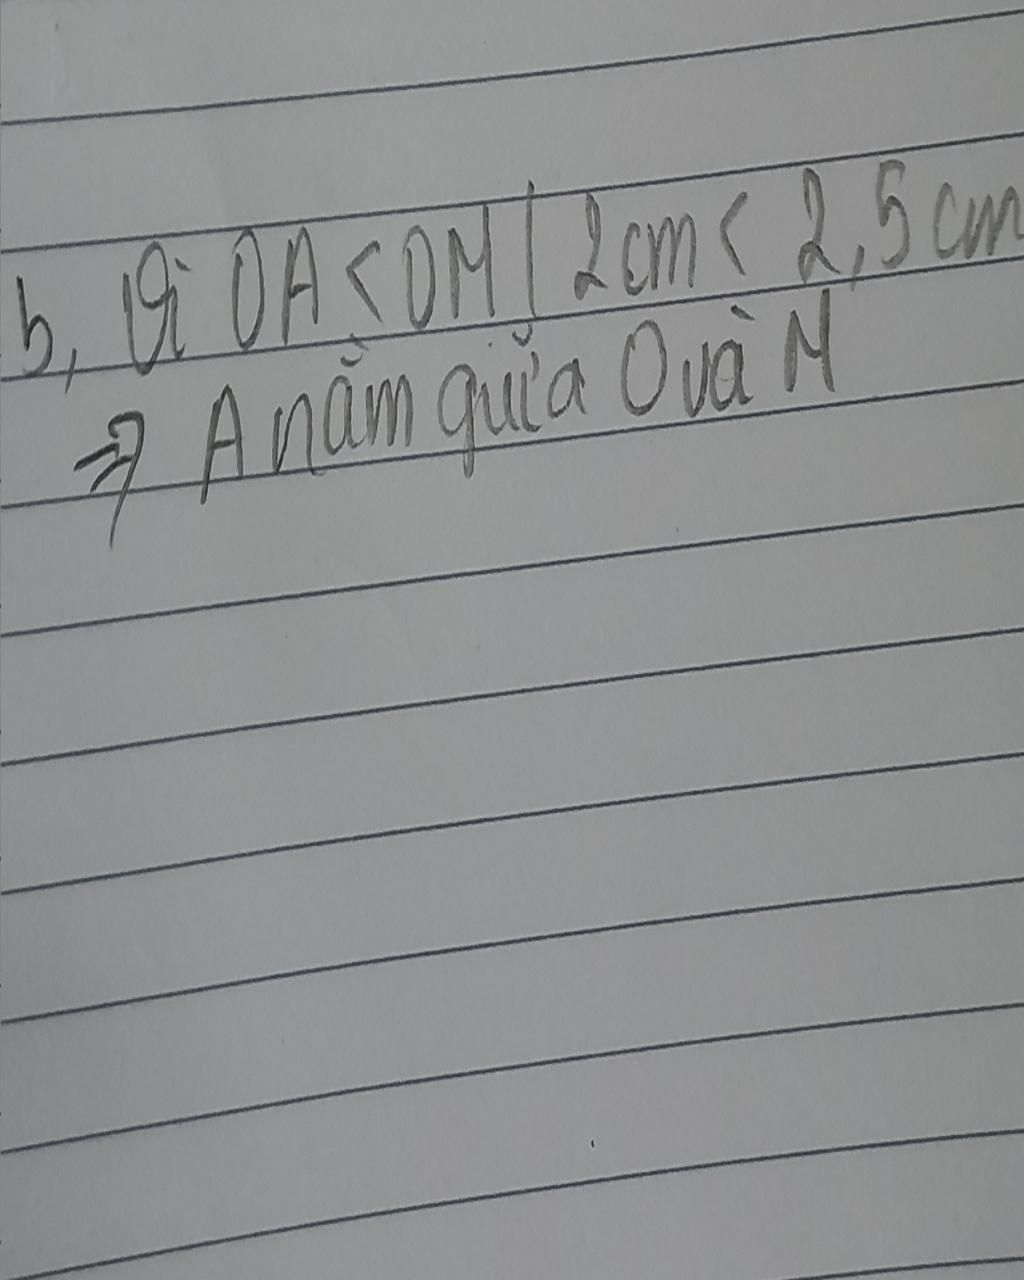 b, Vì OA < OM | 2cm < 2,5 cm
⇒ A nằm giữa O và M